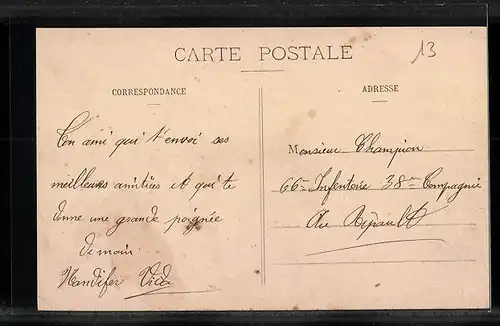 CARTE POSTALE
13
CORRESPONDANCE
Ton ami qui t'envoi ses
meilleurs amitiées et qui te
donne une grande poignée
de main
Vida
ADRESSE
Monsieur Champion
66me Infenterie 38me Compagnie
Au Ripault